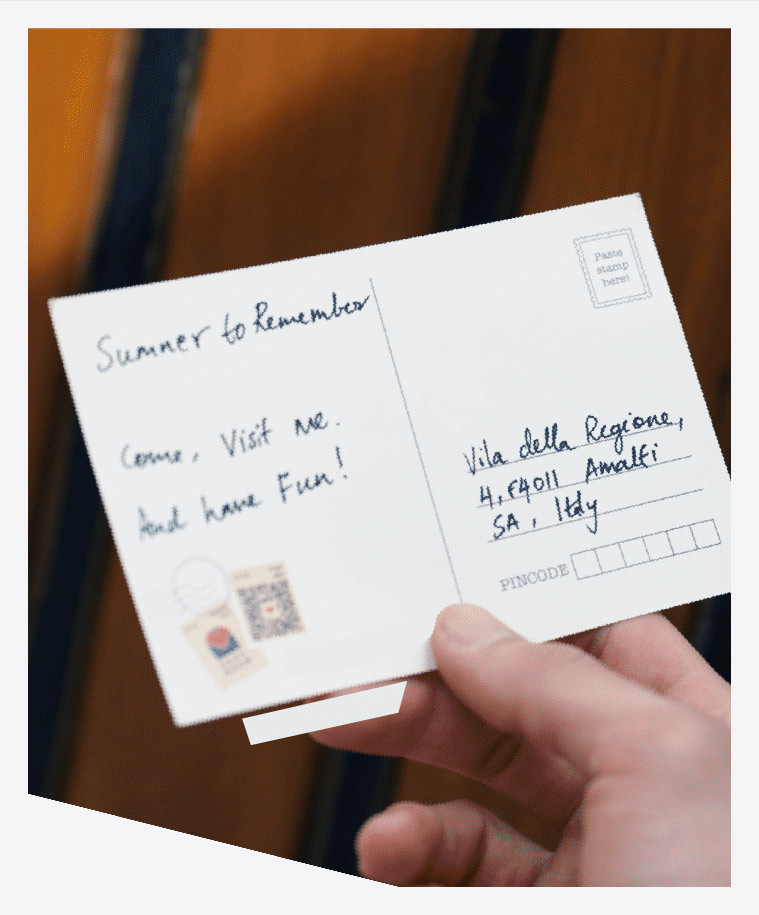 Summer to Remember
Come, Visit me.
And have Fun!
Paste
stamp
here!
Vila della Regione,
4, F4011 Amalfi
SA, Italy
PINCODE